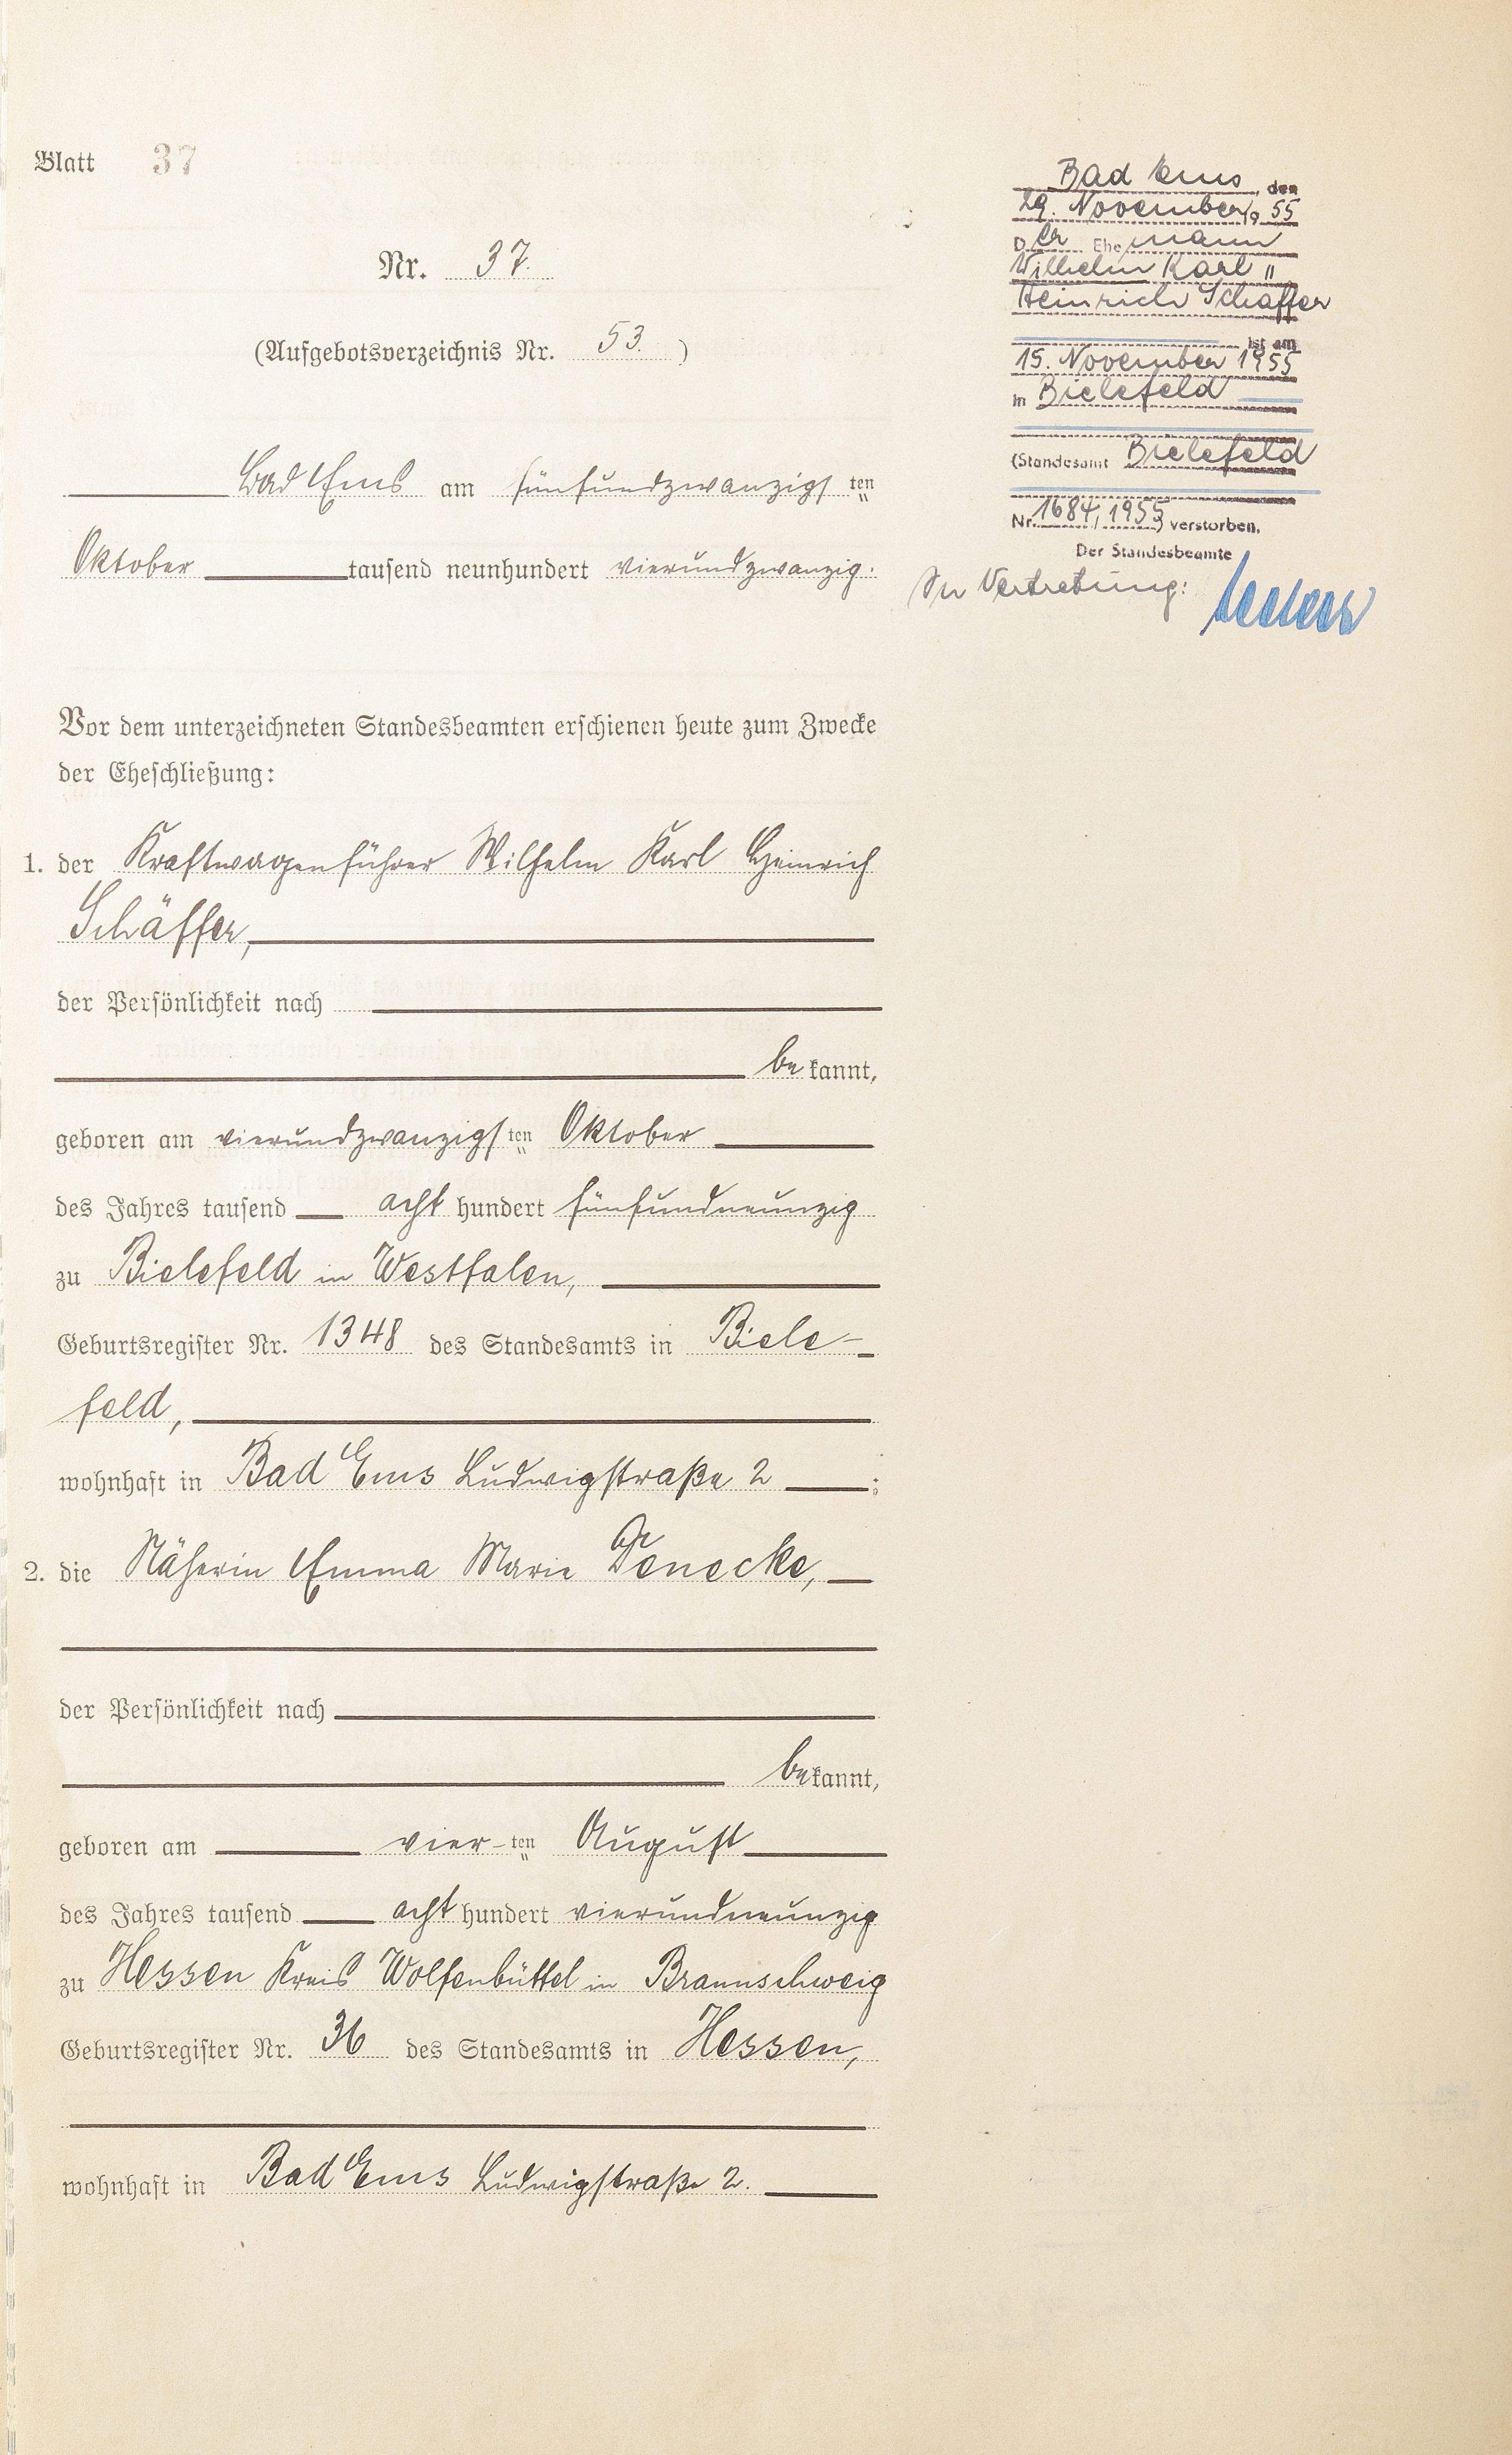 Blatt 37
Nr. 37.
(Aufgebotsverzeichnis Nr. 53.)
Bad Ems am fünfundzwanzigsten
Oktober tausend neunhundert vierundzwanzig.
Vor dem unterzeichneten Standesbeamten erschienen heute zum Zwecke
der Eheschließung:
1. der Kraftwagenführer Wilhelm Karl Heinrich
Schäffer,
der Persönlichkeit nach
bekannt,
geboren am vierundzwanzigsten Oktober
des Jahres tausend acht hundert fünfundneunzig
zu Bielefeld in Westfalen,
Geburtsregister Nr. 1348 des Standesamts in Biele-
feld,
wohnhaft in Bad Ems Ludwigstraße 2;
2. die Näherin Emma Marie Denecke,
der Persönlichkeit nach
bekannt,
geboren am vier-ten August
des Jahres tausend acht hundert vierundneunzig
zu Hessen Kreis Wolfenbüttel in Braunschweig
Geburtsregister Nr. 36 des Standesamts in Hessen,
wohnhaft in Bad Ems Ludwigstraße 2.
Bad Ems, den
29. November 19 55
Der Ehemann
Wilhelm Karl
Heinrich Schäffer
ist am
15. November 1955
in Bielefeld
(Standesamt Bielefeld
Nr. 1684/1955) verstorben.
Der Standesbeamte
In Vertretung: